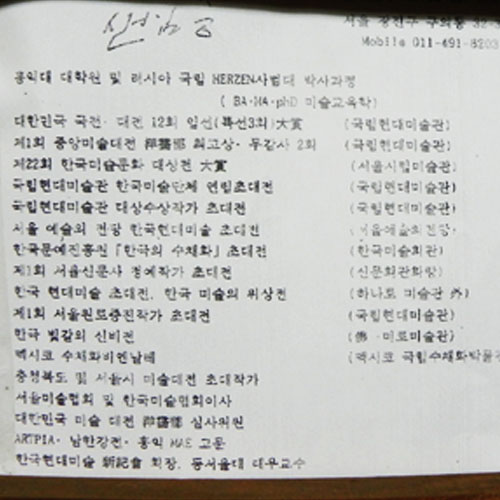 서울 광진구 구의동
Mobile 011-491-8203
홍익대 대학원 및 러시아 국립 HERZEN사범대 박사과정
( BA·MA·phD 미술교육학)
대한민국 국전·대전 12회 입선(특선3회)大賞 (국립현대미술관)
제1회 중앙미술대전 洋畵部 최고상·무감사 2회 (국립현대미술관)
제22회 한국미술문화 대상전 大賞 (서울시립미술관)
국립현대미술관 한국미술단체 연립초대전 (국립현대미술관)
국립현대미술관 대상수상작가 초대전 (국립현대미술관)
서울 예술의 전당 한국현대미술 초대전 (서울예술의전당)
한국문예진흥원「한국의 수채화」초대전 (한국미술회관)
제1회 서울신문사 정예작가 초대전 (신문회관화랑)
한국 현대미술 초대전, 한국 미술의 위상전 (하나로 미술관 外)
제1회 서울원로중진작가 초대전 (국립현대미술관)
한국 빛깔의 신비전 (佛·미로미술관)
멕시코 수채화비엔날레 (멕시코 국립수채화박물관
충청북도 및 서울시 미술대전 초대작가
서울미술협회 및 한국미술협회이사
대한민국 미술 대전 洋畵部 심사위원
ARTPIA· 남한강전· 홍익 MAE 고문
한국현대미술 新記會 회장, 동서울대 대우교수